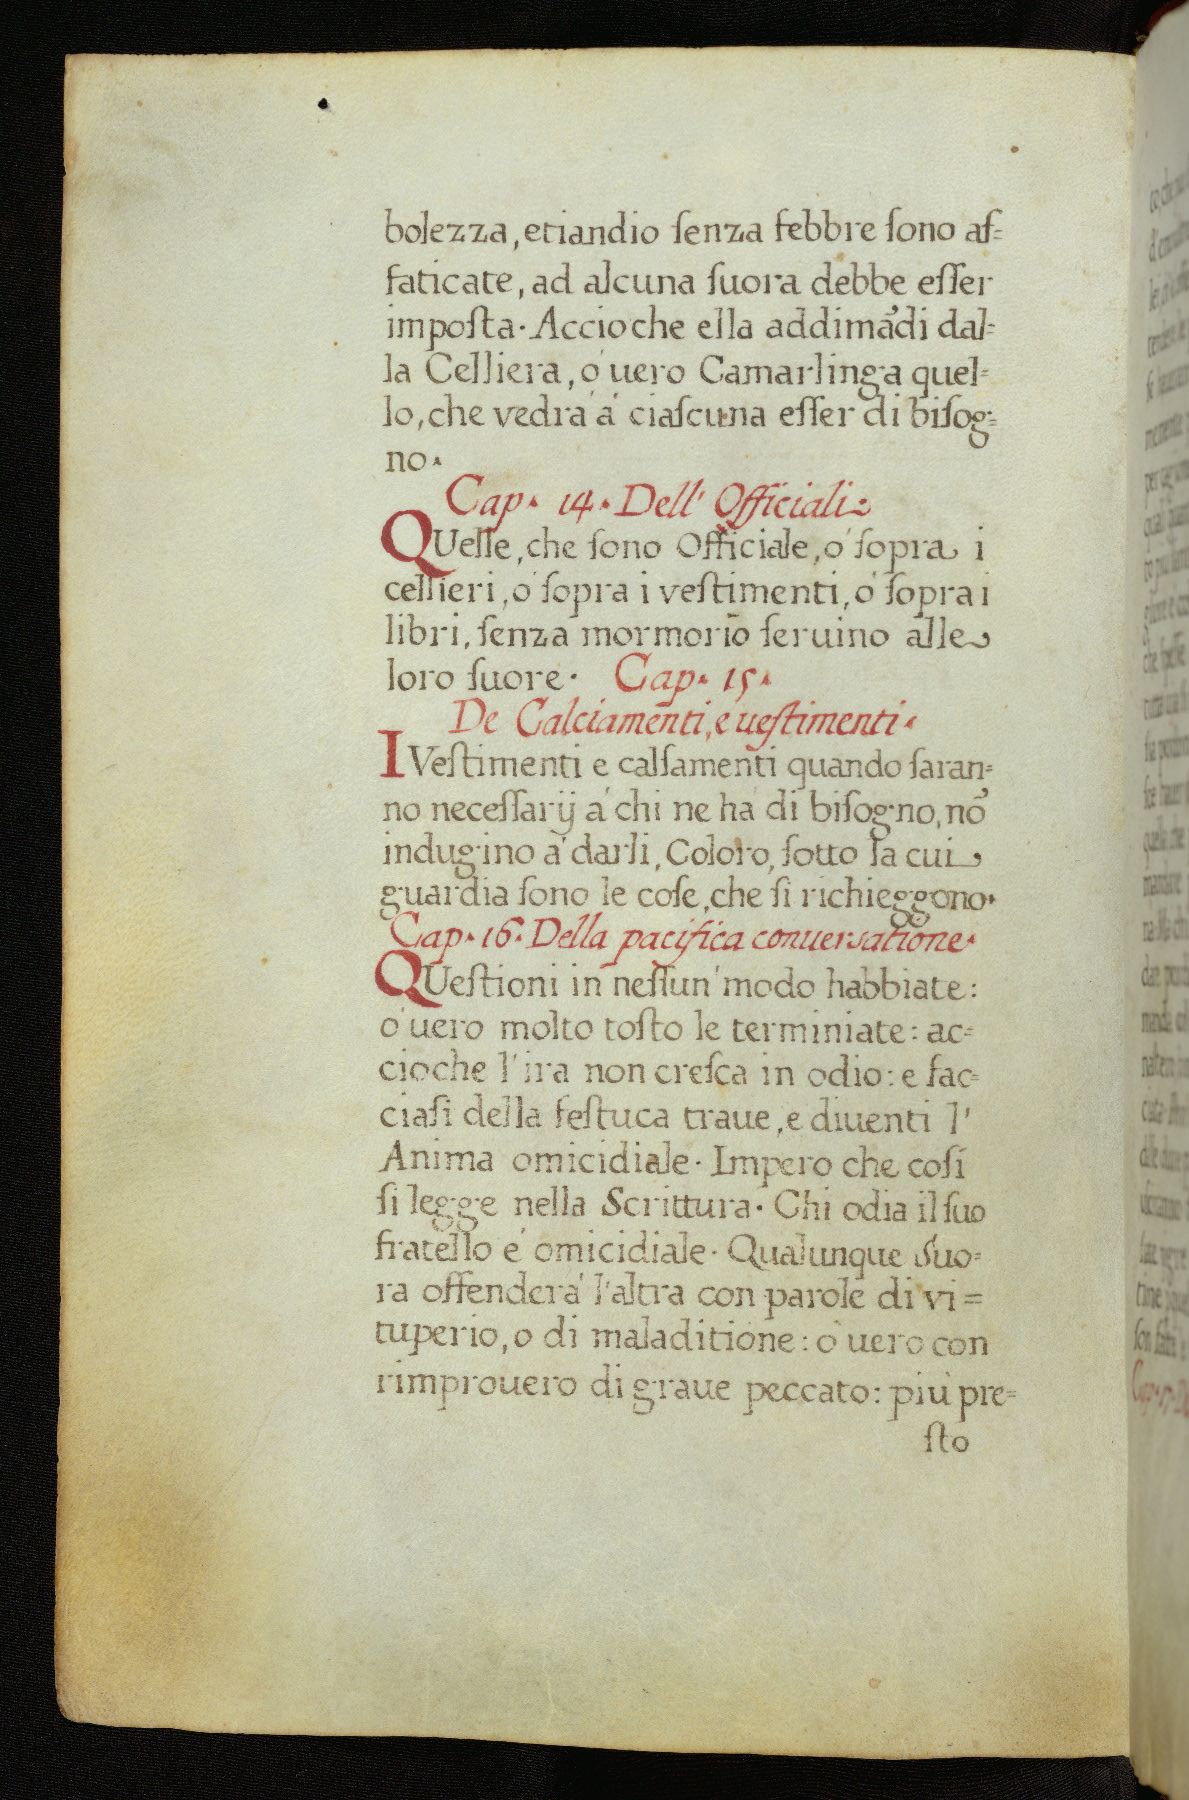 bolezza, etiandio ſenza febbre ſono af=
faticate, ad alcuna ſuora debbe eſſer
impoſta. Accioche ella addimãdi dal=
la Celliera, ó uero Camarlinga quel=
lo, che vedrá á ciaſcuna eſſer di biſog=
no.
Cap. 14. Dell' Officiali.
QUelle, che ſono Officiale, ó ſopra i
cellieri, ó ſopra i veſtimenti, ó ſopra i
libri, ſenza mormorio ſeruino alle
loro ſuore. Cap. 15.
De Calciamenti, e ueſtimenti.
I Veſtimenti e calſamenti quando ſaran=
no neceſſarij á chi ne há di biſogno, nõ
indugino á darli, Coloro, ſotto la cui
guardia ſono le coſe, che ſi richieggono.
Cap. 16. Della pacifica conuerſatione.
QUeſtioni in neſſun' modo habbiate:
ó uero molto toſto le terminiate: ac=
cioche l'ira non creſca in odio: e fac=
ciaſi della feſtuca traue, e diuenti l'
Anima omicidiale. Impero che coſí
ſi legge nella Scrittura. Chi odia il ſuo
fratello é omicidiale. Qualunque Suo=
ra offenderá l'altra con parole di vi=
tuperio, o di maladitione: ó uero con
rimprouero di graue peccato: piú pre=
ſto